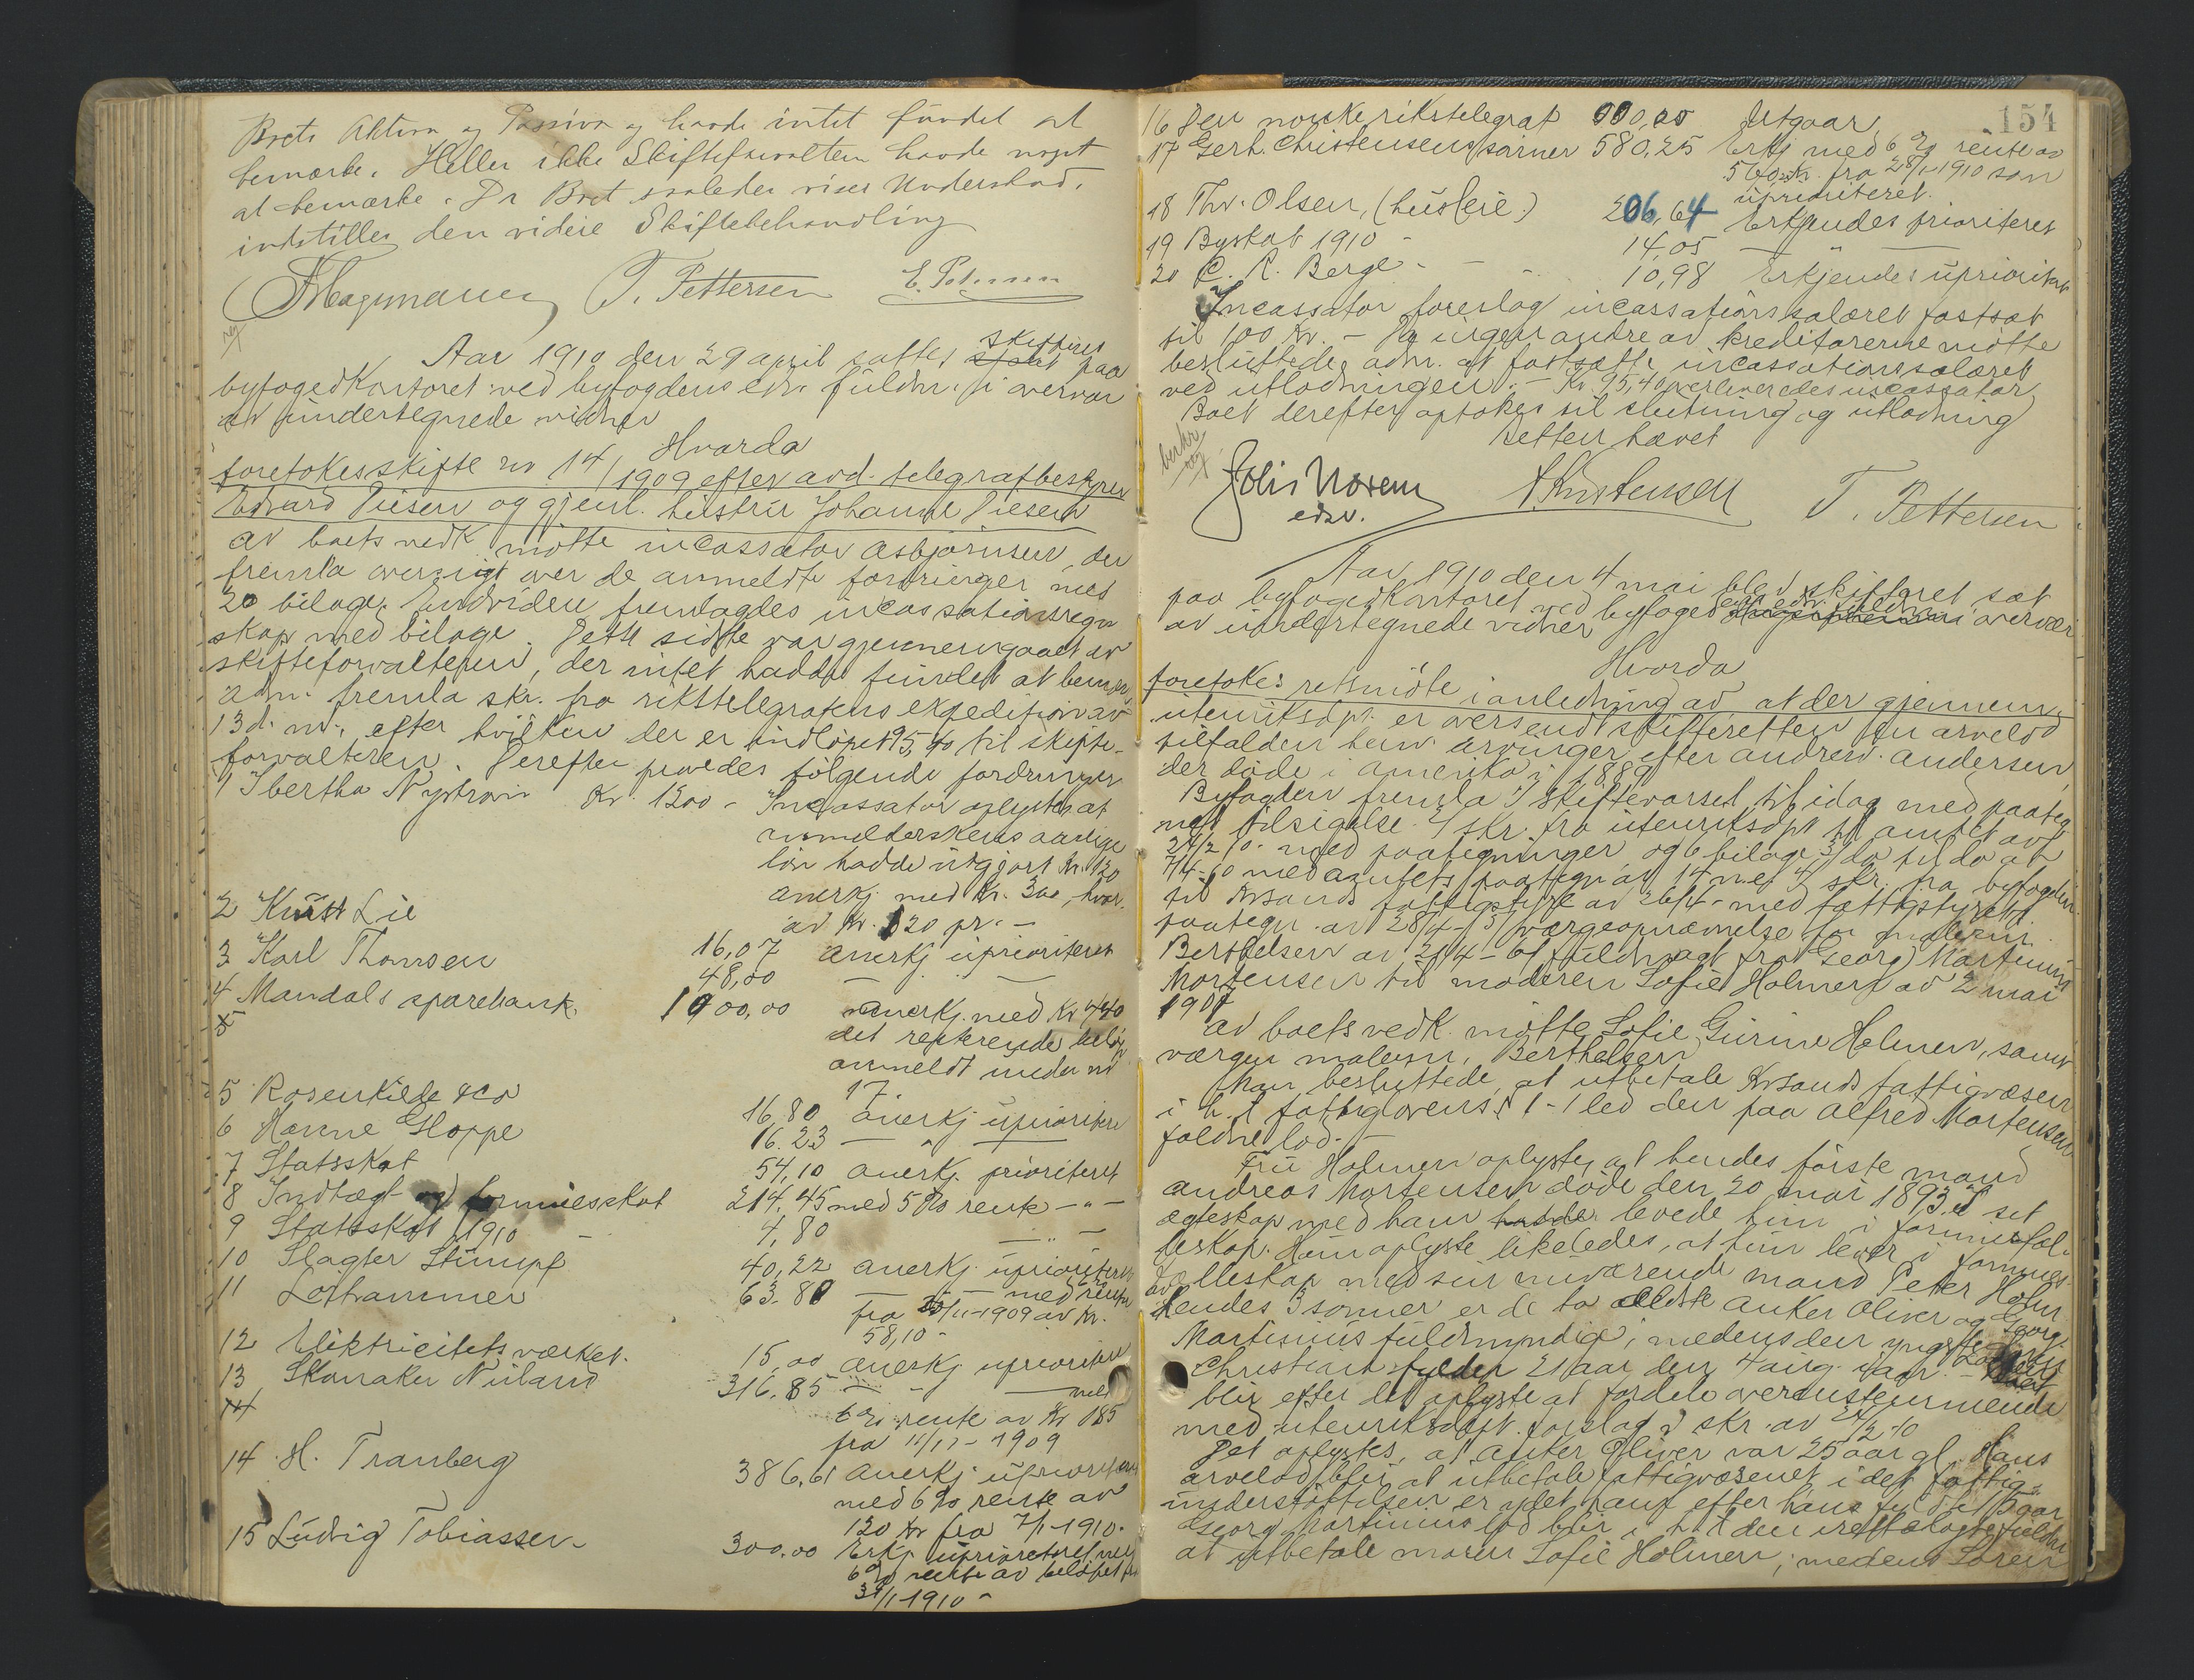 Boets Aktiva og Passiva og havde intet fundet at
bemærke. Heller ikke Skifteforvalteren havde noget
at bemærke. Da Boet saaledes viser Underskud,
indstilles den videre Skiftebehandling
T. Pettersen E. Pedersen
reg
Aar 1910 den 29 april sattes skifteret paa
byfogedkontoret ved byfogdens edsv. fuldm. i overvær
av undertegnede vidner
Hvorda
foretokes skifte nr 14/1909 efter avd. telegrafbestyrer
Edvard Piesen og gjenl. hustru Johanne Piesen
Av boets vedk. møtte incassator Asbjørnsen, der
fremla oversigt over de anmeldte fordringer med
20 bilage. Endvidere fremlagdes incassationsregn
skap med bilage. Dette sidste var gjennemgaaet av
skifteforvalteren, der intet hadde fundet at bemerke
Adm. fremla skr. fra rikstelegrafens expedition av
13 d. m., efter hvilken der er indløpet 95,40 til skifte-
forvalteren. Derefter prøvedes følgende fordringer
1 Ibertha Nystrøm Kr. 1200 - Incassator oplyste at
anmelderskens aarlige
løn hadde utgjort kr. 120
Anerkj med kr. 300, hvor-
av kr. 120 pr. -
2 Knut Lie 16,07 Anerkj uprioriteret
3 Karl Thomsen 48,00 — —
4 Mandals sparebank. 1900,00 Anerkj. med Kr 440
det resterende beløp
anmeldt under nr
17.
5 Rosenkilde & Co 16,80 Anerkj uprioritere
6 Hanne Gloppe 16.23 — " —
7 Statsskat 54,10 Anerkj. prioriteret
8 Indtægt- og formuesskat 214,45 med 5 % rente - " -
9 Statsskat 1910 - 4,80 — " —
10 Slagter Stumpf 40,22 Anerkj uprioriteret
11 Lothammer 63.80 — — med rente
fra 30/11-1909 av kr.
58,10 -
12 Elektricitetsværket. 15,00 Anerkj uprioriteret
13 Skomaker Nuland 316,85 — " — med
6 % rente av Kr 185
fra 11/11 - 1909
14 H. Tranberg 386,61 Anerkj uprioriteret
med 6 % rente av
120 Kr fra 7/1-1910.
15 Ludvig Tobiassen - 300.00 Erkj uprioriteret med
6 % rente av beløpet fra
31/1-1910 -
154
16 Den norske rikstelegraf 000,00 Utgaar
17 Gerh. Christensens sønner 580,25 Erkj med 6 % rente av
560 kr. fra 28/1 1910 som
uprioriteret.
18 Thv. Olsen, (husleie) 206,64 Erkjendes prioriteret
19 Byskat 1910 - 14,05 — " —
20 C. R. Berge - - - 10,98 Erkjendes uprioritert
Incassator foreslog incassationssalæret fastsat
til 100 kr. - Da ingen andre av kreditorerne møtte
besluttede adm. at fastsætte incassationssalæret
ved utlodningen. - Kr. 95,40 overleveredes incassator
Boet derefter optokes til slutning og utlodning
Retten hævet
bekr
reg
Johs Noxem A. Kristensen T. Pettersen
edsv.
Aar 1910 den 4 mai blev skifteret sat
paa byfogedkontoret ved byfogedens edsv. fuldm. i overvær
av undertegnede vidner
Hvorda
foretokes retsmøte i anledning av at der gjennem
utenriksdpt. er oversendt skifteretten en arvelod
tilfalden henv. arvinger efter Andrew Andersen
der døde i Amerika i 1889
Byfogden fremla 1/ skiftevarsel til idag med paateg
net tilsigelse 2/ skr. fra utenriksdpt til amtet av
24/2 10. med paategninger og 6 bilage 3/ do til do av
7/4-10 med amtets paategn av 14 n.ef 4/ skr. fra byfogden
til Krsands fattigstyre av 26/4 - med fattigstyrets
paategn. av 28/4 - 5/ værgeopnævnelse for malerm.
Berthelsen av 29/4 - 6/ fuldmagt fra Georg Martinius
Mortensen til moderen Sofie Holmen av 2 mai
1907
Av boets vedk. møtte Sofie Gurine Holmen, samt
værgen malerm. Berthelsen
Man besluttede, at utbetale Krsands fattigvæsen
i h. t. fattiglovens § 1 - 1 led den paa Alfred Mortensen
faldne lod. -
Fru Holmen oplyste at hendes første mand
Andreas Mortensen døde den 20 mai 1893. I sit
egteskap med ham levede hun i formuesfæl-
leskap. Hun oplyste likeledes, at hun lever i formues-
fælleskap med sin nuværende mand Peter Holm
Av hendes 3 sønner er de to ældste Anker Oliver og Georg
Martinius fuldmyndig, medens den yngste Søren
Christian fylder 21 aar den 4 aug. iaar. -
blir efter det oplyste at fordele overensstemmende
med utenriksdept. forslag i skr. av 24/2-10
Det oplystes, at Anker Oliver var 25 aar gl. Hans
arvelod blir at utbetale fattigvæsenet, idet fattig-
understøttelsen er ydet ham efter hans fyldte 15 aar
Georg Martinius lod blir i h. t. den irettelagte fuldm
at utbetale moren Sofie Holmen, medens Søren